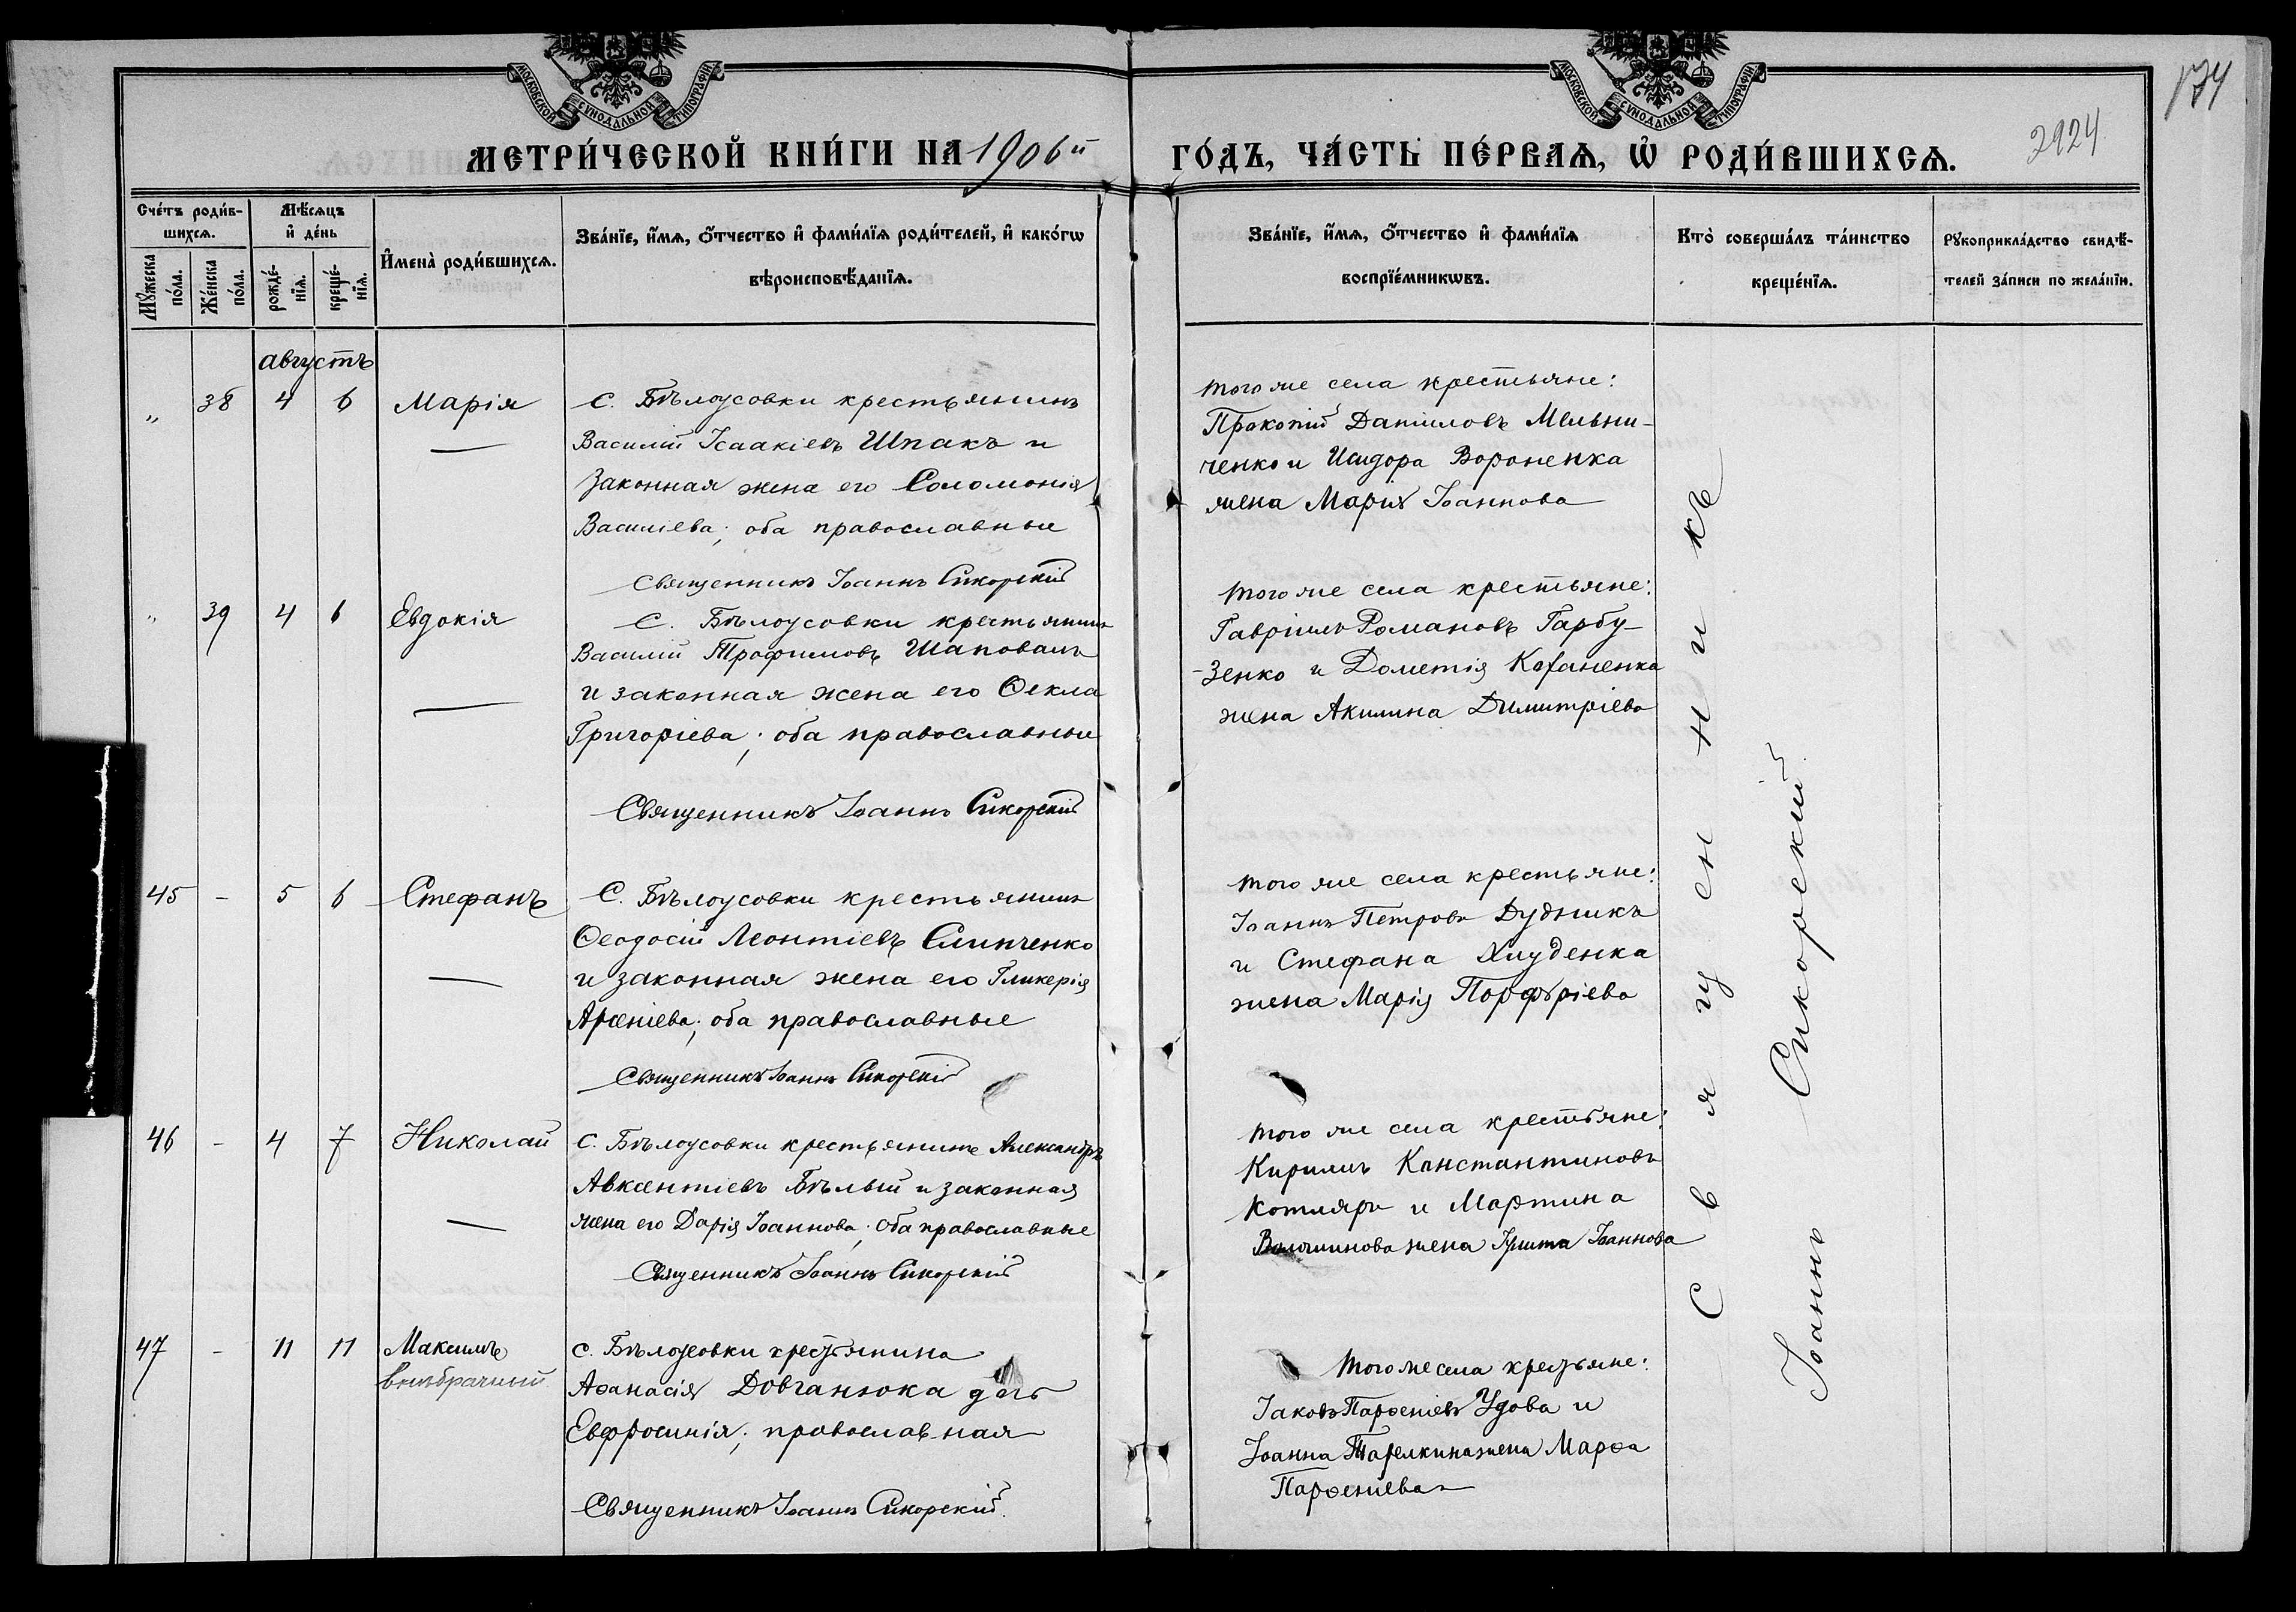 МОСКОВСКОЙ СѴНОДАЛЬНОЙ ТИПОГРАФІИ
МОСКОВСКОЙ СѴНОДАЛЬНОЙ ТИПОГРАФІИ
174
2924
МЕТРИ́ЧЕСКОЙ КНИ́ГИ НА 1906й ГО́ДЪ, ЧА́СТЬ ПЕ́РВАѦ, Ѡ҆ РОДИ́ВШИХСѦ.
Сче́тъ роди́в-
шихсѧ.
Мѣ́сѧцъ
и҆ де́нь
Мꙋ́жеска
по́ла.
Же́нска
по́ла.
рожде́-
нїѧ.
креще́-
нїѧ.
И҆мена̀ роди́вшихсѧ.
Зва́нїе, и҆́мѧ, ѻ҆́тчество и҆ фами́лїѧ роди́телей, и҆ како́гѡ
вѣроисповѣ́данїѧ.
Зва́нїе, и҆́мѧ, ѻ҆́тчество и҆ фами́лїѧ
воспрїе́мникѡвъ.
Кто̀ соверша́лъ та́инство
креще́нїѧ.
Рꙋкоприкла́дство свидѣ́-
телей за́писи по жела́нїю.
августъ
„ 38 4 6 Марія
С. Бѣлоусовки крестьянинъ
Василій Ісаакіевъ Шпакъ и
законная жена его Соломонія
Василіева; оба православные
Священникъ Іоаннъ Сикорскій
того же села крестьяне:
Прокопій Даніиловъ Мельни-
ченко и Исидора Вороненка
жена Марія Іоаннова
„ 39 4 6 Евдокія
С. Бѣлоусовки крестьянинъ
Василій Трофимовъ Шаповалъ
и законная жена его Ѳекла
Григоріева; оба православные
Священникъ Іоаннъ Сикорскій
того же села крестьяне:
Гавріилъ Романовъ Гарбу-
-зенко и Дометія Коханенка
жена Акилина Димитріева
45 - 5 6 Стефанъ
С. Бѣлоусовки крестьянинъ
Ѳеодосій Леонтіевъ Слипченко
и законная жена его Гликерія
Арсеніева; оба православные
Священникъ Іоаннъ Сикорскій
того же села крестьяне:
Іоаннъ Петровъ Дудникъ
и Стефана Хлуденка
жена Марія Порфѵріева
46 - 4 7 Николай
С. Бѣлоусовки крестьянинъ Александръ
Авксентіевъ Бѣлый и законная
жена его Дарія Іоаннова; оба православные
Священникъ Іоаннъ Сикорскій
того же села крестьяне:
Кириллъ Константиновъ
Котляръ и Мартина
Волошинова жена Іулитта Іоаннова
47 - 11 11 Максимъ
внѣбрачный
с. Бѣлоусовки крестьянина
Аѳанасія Довганюка дочь
Евфросинія; православная
Священникъ Іоаннъ Сикорскій.
Того же села крестьяне:
Іаковъ Парѳеніевъ Удова и
Іоанна Тарелкина жена Марѳа
Парѳеніева
Священникъ
Іоаннъ Сикорскій.